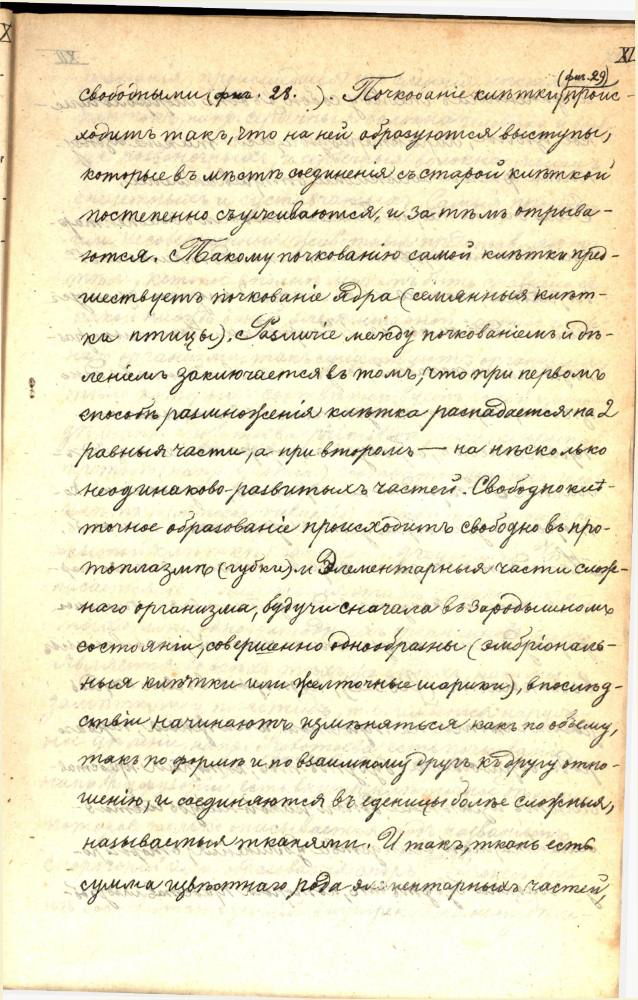 XI
(фиг. 29)
свободными (фиг. 28. ). Почкованіе клѣтки проис-
ходитъ такъ, что на ней образуются выступы,
которые въ мѣстѣ соединенія съ старой клѣткой
постепенно съуживаются, и за тѣмъ отрыва-
ются. Такому почкованію самой клѣтки пред-
шествуетъ почкованіе ядра (семянныя клѣт-
ки птицы). Различіе между почкованіемъ и дѣ-
леніемъ заключается въ томъ, что при первомъ
способѣ размноженія клѣтка распадается на 2
равныя части, а при второмъ — на нѣсколько
неодинаково-развитыхъ частей. Свободно клѣ-
точное образованіе происходитъ свободно въ про-
топлазмѣ (губки) и Элементарныя части слож-
наго организма, будучи сначала въ зародышномъ
состояніи, совершенно однообразны (эмбріональ-
ныя клѣтки или желточные шарики), впослѣд-
ствіи начинаютъ измѣняться какъ по объему,
такъ по формѣ и по взаимному другъ къ другу отно-
шенію, и соединяются въ еденицы болѣе сложныя,
называемыя тканями. И такъ, ткань есть
сумма извѣстнаго рода элементарныхъ частей,